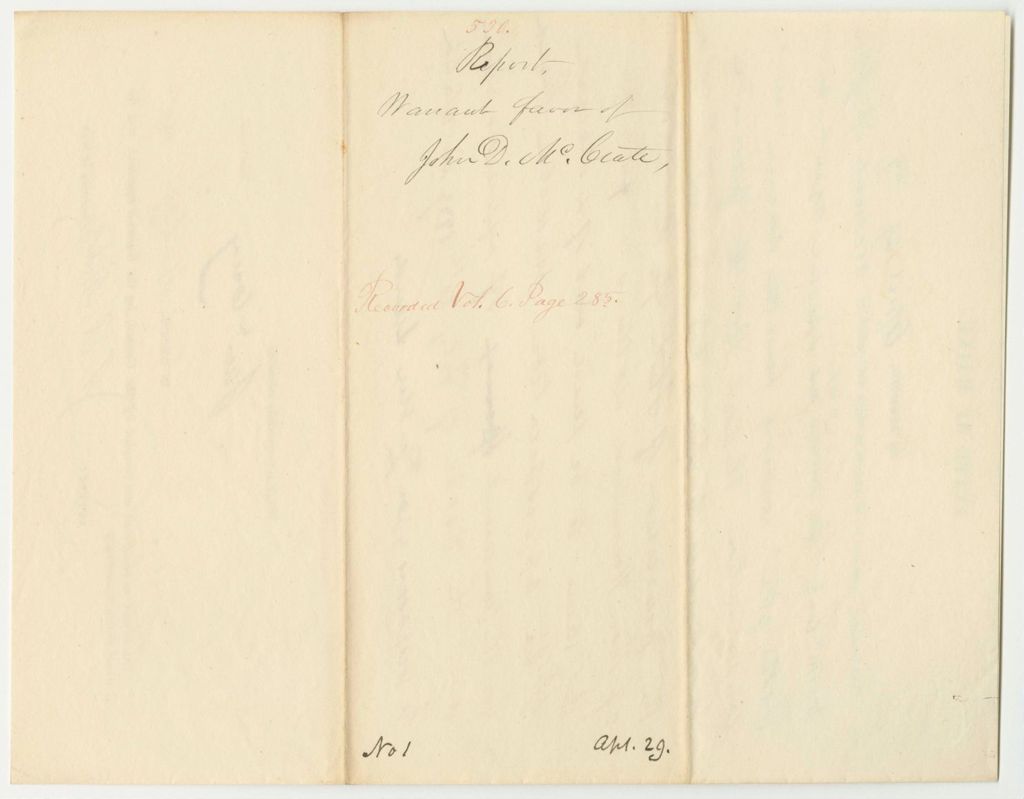 530.
Report,
Warrant favor of
John D. Mc. Crate,
Recorded Vol. 6. Page 285.
No 1
Apl. 29.